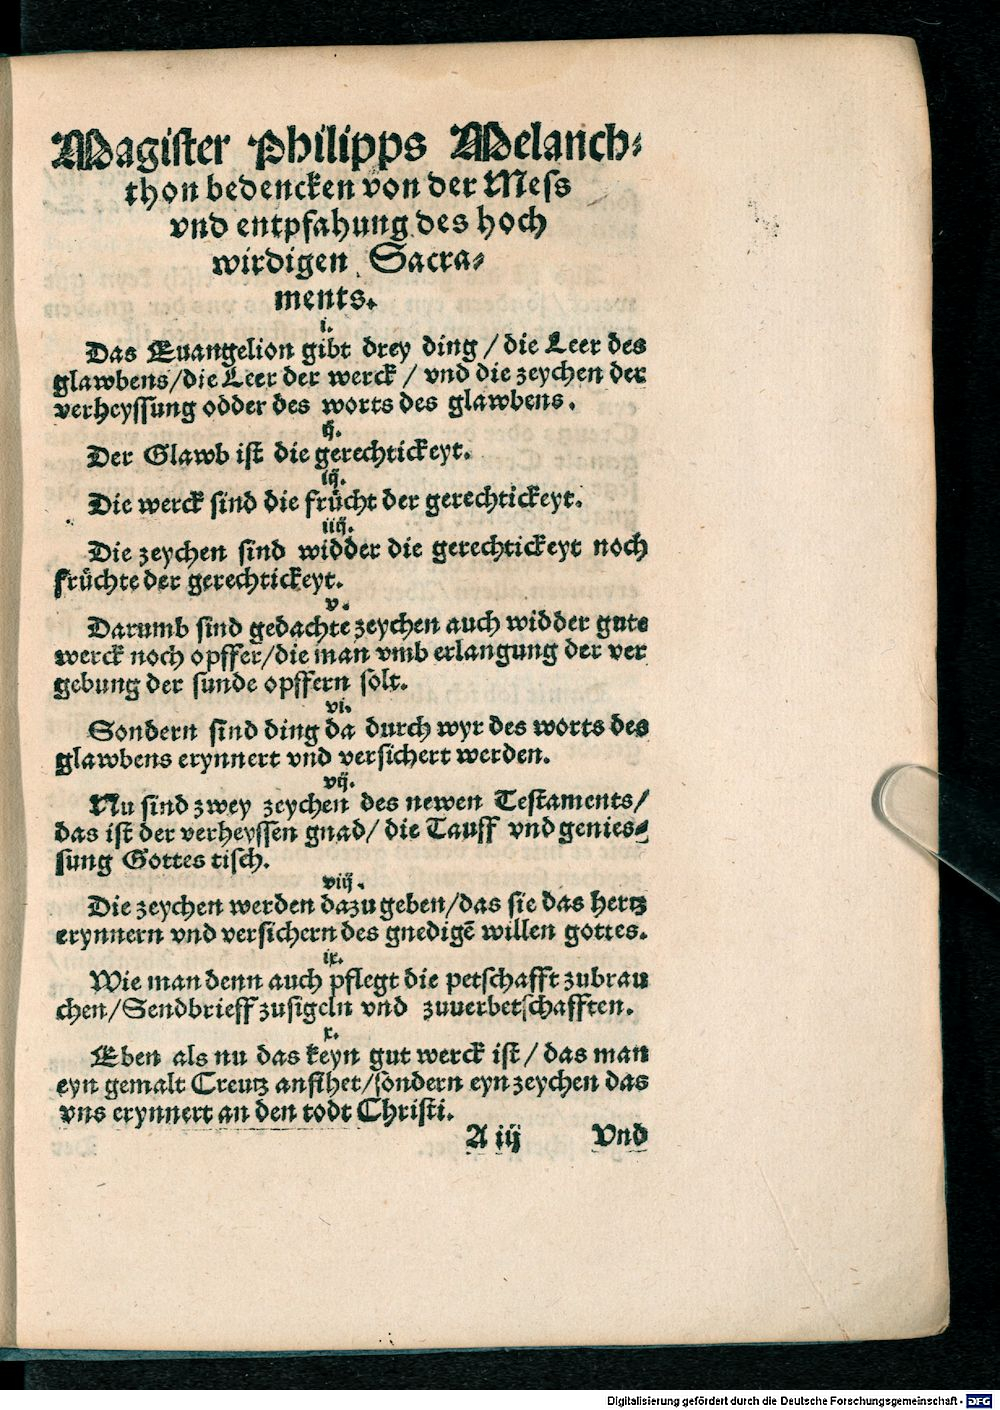 Magister Philipps Melanch⸗
thon bedencken von der Mess
vnd entpfahung des hoch
wirdigen Sacra⸗
ments.
i.
Das Euangelion gibt drey ding / die Leer des
glawbens / die Leer der werck / vnd die zeychen der
verheyssung odder des worts des glawbens.
ij.
Der Glawb ist die gerechtickeyt.
iij.
Die werck sind die frücht der gerechtickeyt.
iiij.
Die zeychen sind widder die gerechtickeyt noch
früchte der gerechtickeyt.
v.
Darumb sind gedachte zeychen auch widder gute
werck noch opffer / die man vmb erlangung der ver
gebung der sunde opffern solt.
vi.
Sondern sind ding da durch wyr des worts des
glawbens erynnert vnd versichert werden.
vij.
Nu sind zwey zeychen des newen Testaments /
das ist der verheyssen gnad / die Tauff vnd genies⸗
sung Gottes tisch.
viij.
Die zeychen werden dazu geben / das sie das hertz
erynnern vnd versichern des gnedigē willen gottes.
ix.
Wie man denn auch pflegt die petschafft zubrau
chen / Sendbrieff zusigeln vnd zuuerbetschafften.
x.
Eben als nu das keyn gut werck ist / das man
eyn gemalt Creutz ansihet / sondern eyn zeychen das
vns erynnert an den todt Christi.
A iij Vnd
Digitalisierung gefördert durch die Deutsche Forschungsgemeinschaft - DFG